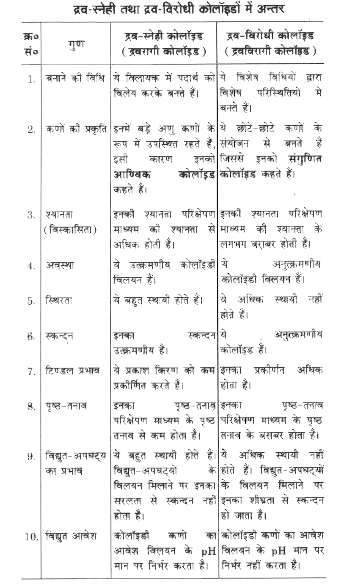 द्रव-स्नेही तथा द्रव-विरोधी कोलॉइडों में अन्तर
क्र० सं० गुण द्रव-स्नेही कोलॉइड (द्रवरागी कोलॉइड) द्रव-विरोधी कोलॉइड (द्रवविरागी कोलॉइड)
1. बनाने की विधि ये विलायक में पदार्थ को ये विशेष विधियों द्वारा
विलेय करके बनते हैं। विशेष परिस्थितियों में
बनते हैं।
2. कणों की प्रकृति इनमें बड़े अणु कणों के ये छोटे-छोटे कणों के
रूप में उपस्थित रहते हैं, संयोजन से बनते हैं
इसी कारण इनको जिससे इनको संगुणित
आण्विक कोलॉइड कोलॉइड कहते हैं।
कहते हैं।
3. श्यानता इनकी श्यानता परिक्षेपण इनकी श्यानता परिक्षेपण
(विस्कासिता) माध्यम की श्यानता से माध्यम की श्यानता के
अधिक होती है। लगभग बराबर होती है।
4. अवस्था ये उत्क्रमणीय कोलॉइडी ये अनुत्क्रमणीय
विलयन हैं। कोलॉइडी विलयन हैं।
5. स्थिरता ये बहुत स्थायी होते हैं। ये अधिक स्थायी नहीं
होते हैं।
6. स्कन्दन इनका स्कन्दन ये अनुत्क्रमणीय
उत्क्रमणीय है। कोलॉइड हैं।
7. टिण्डल प्रभाव ये प्रकाश किरण को कम इनका प्रकीर्णन अधिक
प्रकीर्णित करते हैं। होता है।
8. पृष्ठ-तनाव इनका पृष्ठ-तनाव इनका पृष्ठ-तनाव
परिक्षेपण माध्यम के पृष्ठ परिक्षेपण माध्यम के पृष्ठ
तनाव से कम होता है। तनाव के बराबर होता है।
9. विद्युत-अपघट्य ये बहुत स्थायी होते हैं। ये अधिक स्थायी नहीं
का प्रभाव विद्युत-अपघट्यों के होते हैं। विद्युत-अपघट्यों
विलयन मिलाने पर इनका के विलयन मिलाने पर
सरलता से स्कन्दन नहीं इनका शीघ्रता से स्कन्दन
होता है। हो जाता है।
10. विद्युत आवेश कोलॉइडी कणों का कोलॉइडी कणों का आवेश
आवेश विलयन के pH विलयन के pH मान पर
मान पर निर्भर करता है। निर्भर नहीं करता है।